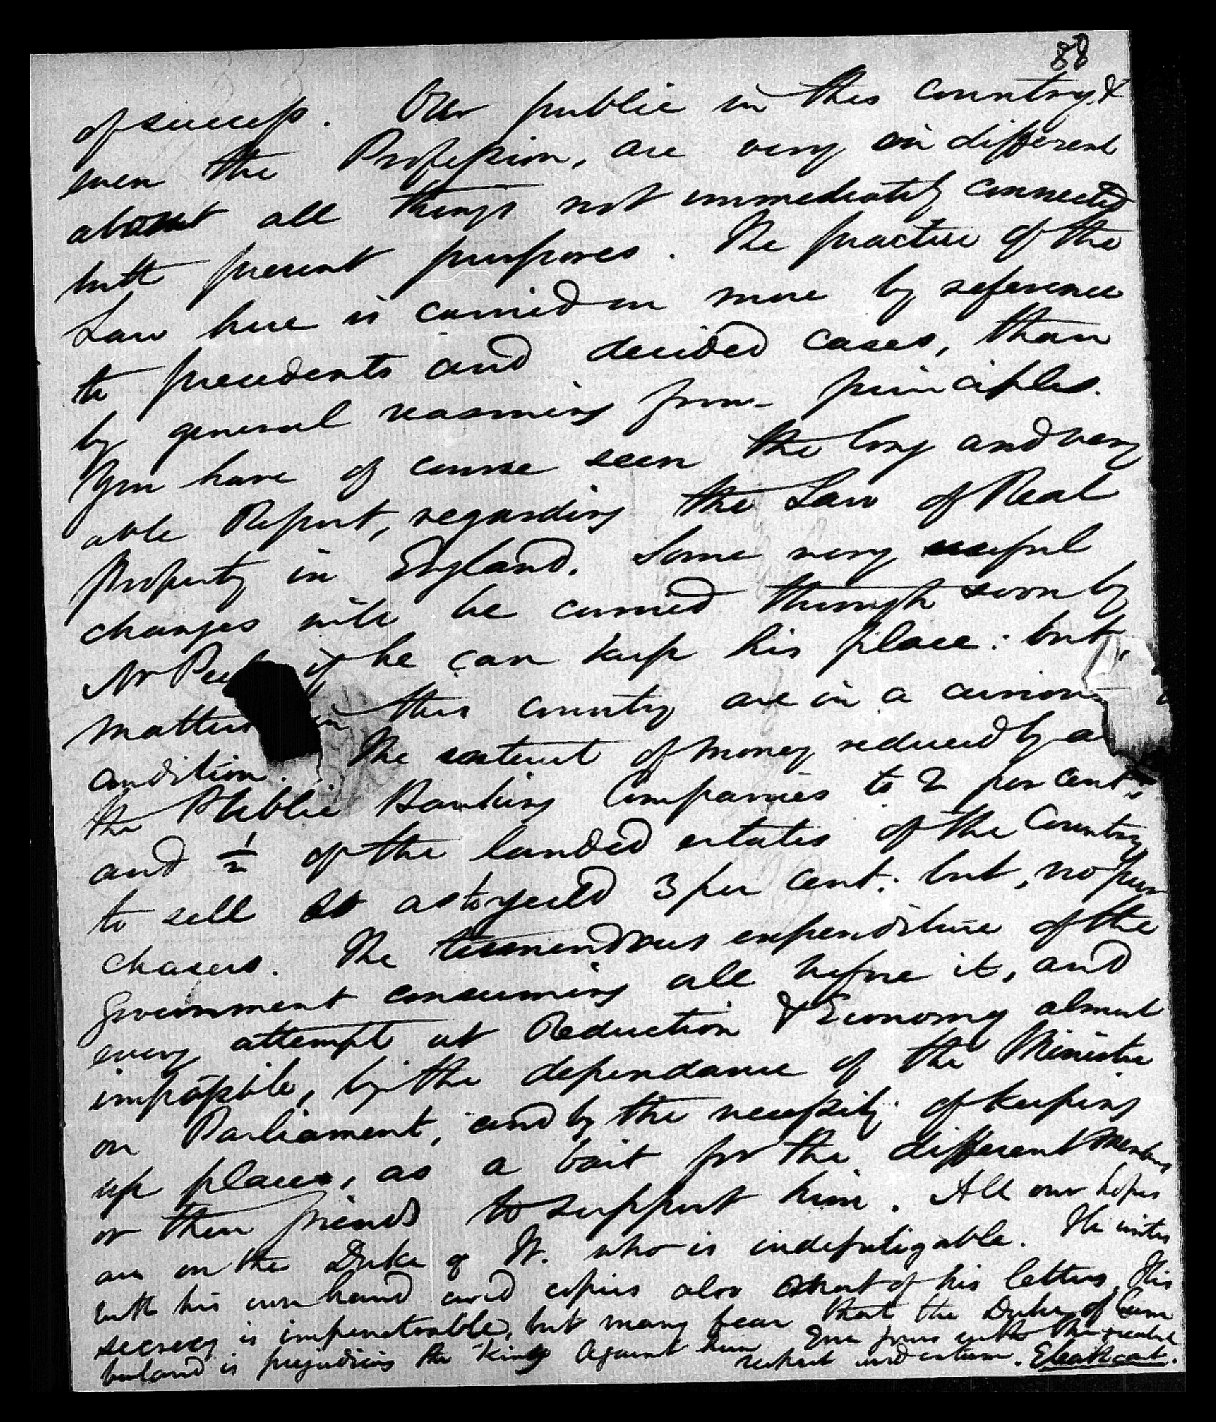 88
of success. Our public in this country, &
even the Profession, are very indifferent
about all things not immediately connected
with present purposes. The practice of the
Law here is carried on more by reference
to precedents and decided cases, than
by general reasoning from principles.
You have of course seen the long and very
able Report, regarding the Law of Real
Property in England. Some very useful
changes will be carried through soon by
Mr Peel if he can keep his place: but,
matters in this country are in a curious
condition. The interest of money reduced by a
the Public Banking Companies to 2 per cent.
and ½ of the landed estates of the Country
to sell so as to yield 3 per cent: but, no pur
chasers. The tremendous expenditure of the
Government consuming all before it, and
every attempt at Reduction & Economy almost
impossible, by the dependance of the Minister
on Parliament, and by the necessity of keeping
up places, as a bait for the different Members
or their friends to support him. All our hopes
are on the Duke of W. who is indefatigable. He writes
with his own hand and copies also most of his letters, His
secrecy is impenetrable, but many fear that the Duke of Cum
berland is prejudicing the King against him Ever yours with the greatest
respect and esteem. Cathcart.